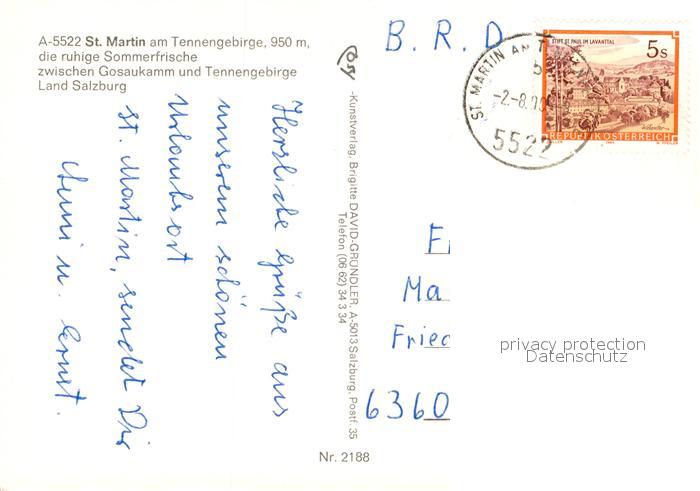 A-5522 St. Martin am Tennengebirge, 950 m,
die ruhige Sommerfrische
zwischen Gosaukamm und Tennengebirge
Land Salzburg
Herzliche Grüße aus
unserem schönen
Urlaubsort
St. Martin, sendet Dir
u. Ernst.
-Kunstverlag, Brigitte DAVID-GRÜNDLER, A-5013 Salzburg, Postf. 35
Telefon (06 62) 34 3 34
Nr. 2188
B. R. D
ST. MARTIN AM TENNEN
-2.-8.90
5522
STIFT ST. PAUL IM LAVANTTAL
5 S
REPUBLIK ÖSTERREICH
Ma
Fried
6360
privacy protection
Datenschutz